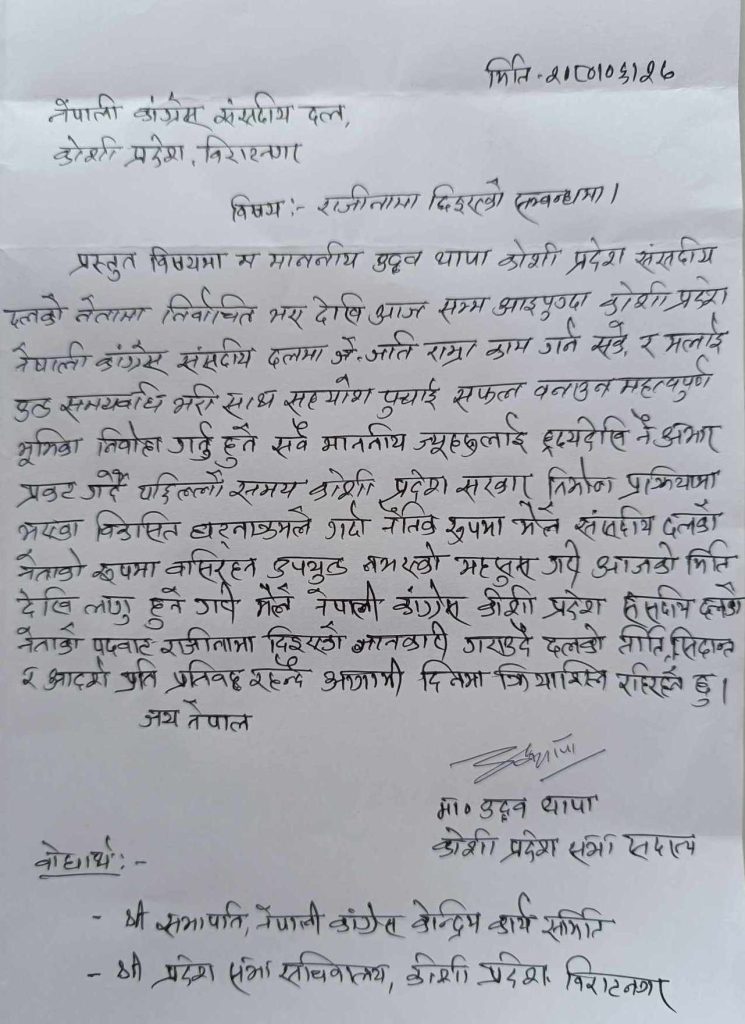 मिति - २०८०।०६।२७
नेपाली कांग्रेस संसदीय दल,
कोशी प्रदेश, विराटनगर
विषय :- राजीनामा दिइएको सम्बन्धमा।
प्रस्तुत विषयमा म माननीय उद्धव थापा कोशी प्रदेश संसदीय
दलको नेतामा निर्वाचित भए देखि आज सम्म आइपुग्दा कोशी प्रदेश
नेपाली कांग्रेस संसदीय दलमा जे-जति राम्रा काम गर्न सकें, र मलाई
उक्त समयावधि भरी साथ सहयोग पुर्याई सफल वनाउन महत्वपुर्ण
भूमिका निर्वाह गर्नु हुने सवै माननीय ज्यूहरुलाई ह्रदयदेखि नै आभार
प्रकट गर्दै पछिल्लो समय कोशी प्रदेश सरकार निर्माण प्रक्रियामा
भएका विकासित घटनाक्रमले गर्दा नैतिक रूपमा मैले संसदीय दलको
नेताको रूपमा वसिरहन उपयुक्त नभएको महसुस गरी आजको मिति
देखि लागु हुने गरी मैले नेपाली कांग्रेस कोशी प्रदेश संसदीय दलको
नेताको पदवाट राजीनामा दिइएको जानकारी गराउदै दलको नीति, सिद्दान्त
र आदर्श प्रति प्रतिवद्ध रहन्दै आगामी दिनमा क्रियाशिल रहिरहने छु।
जय नेपाल
मा० उद्धव थापा
कोशी प्रदेश सभा सदस्य
वोधार्थ :-
- श्री सभापति, नेपाली कांग्रेस केन्द्रिय कार्य समिति
- श्री प्रदेश सभा सचिवालय, कोशी प्रदेश विराटनगर